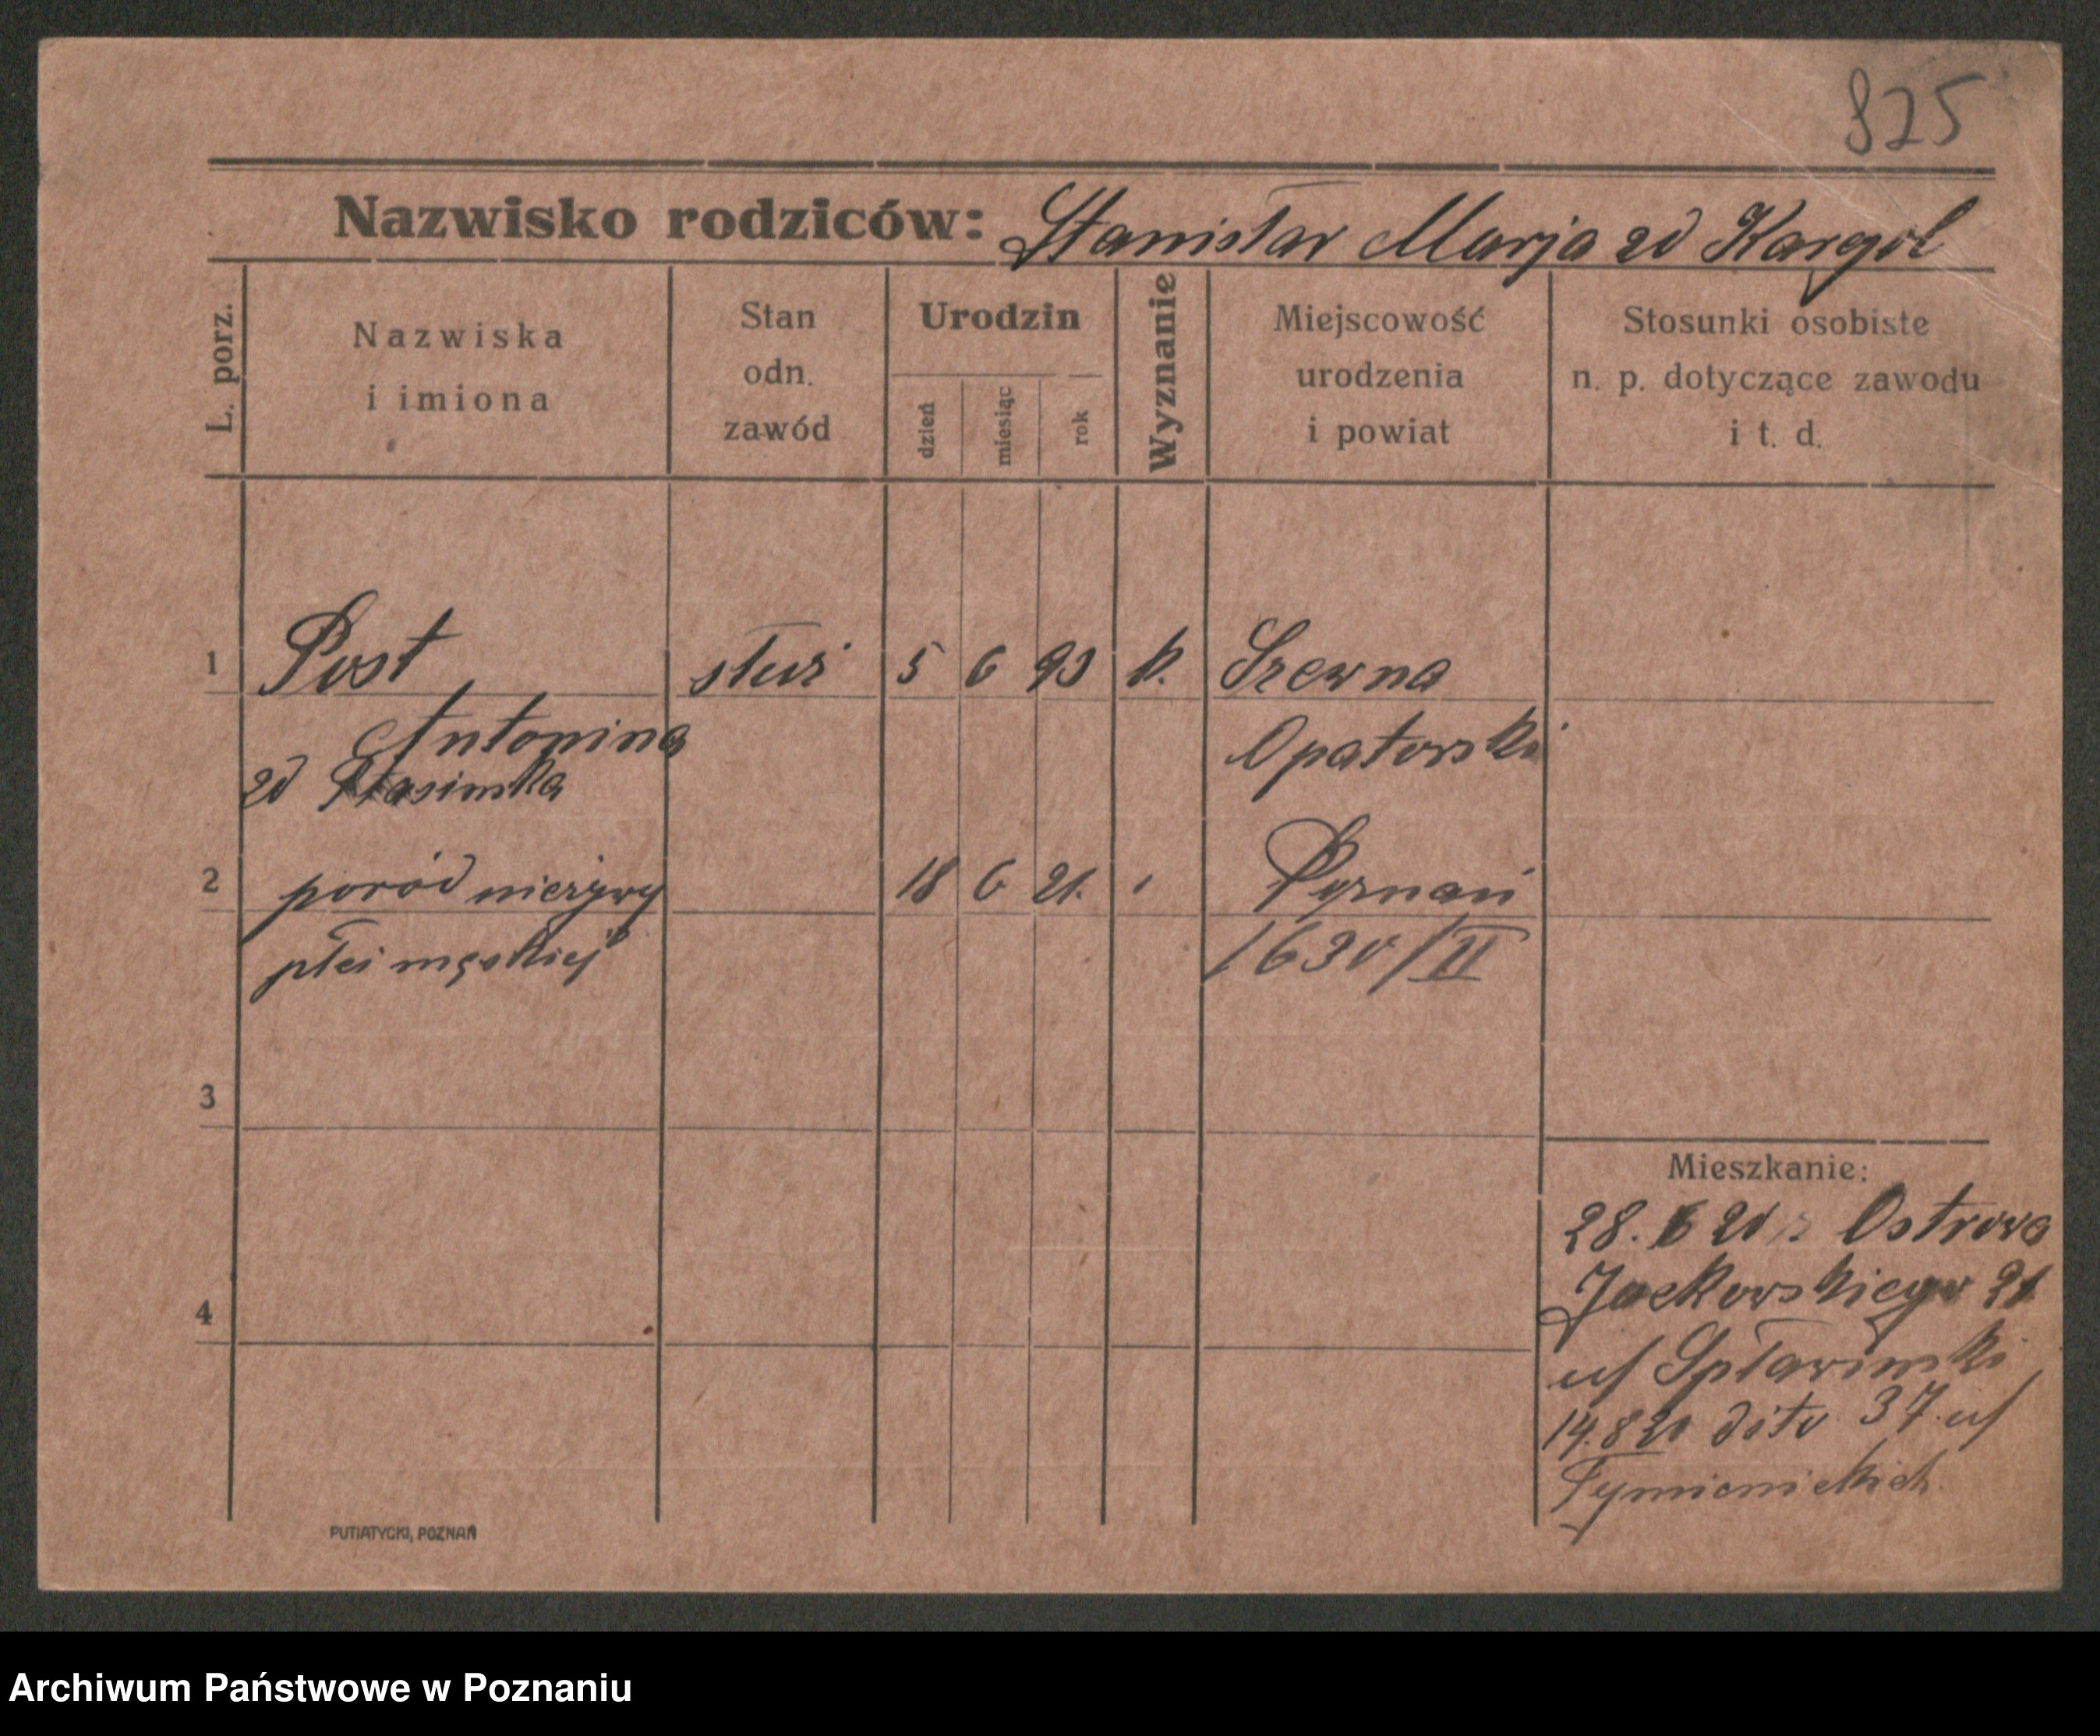 825
Nazwisko rodziców: Stanisław Marja zd Kargol
L. porz.
Nazwiska
i imiona
Stan
odn.
zawód
Urodzin
dzień
miesiąc
rok
Wyznanie
Miejscowość
urodzenia
i powiat
Stosunki osobiste
n. p. dotyczące zawodu
i t. d.
1 Post służ 5 6 93 k. Szewna
Antonina Opatowski
zd
2 poród nieżywy 18 6 21. Poznań
płci męskiej 1630/II
3
4
Mieszkanie:
28. 6 20 z Ostrowa
Jackowskiego 21
u/ Spławinski
14.8 20 dito 37 u/
Tymienieckich
PUTIATYCKI, POZNAŃ
Archiwum Państwowe w Poznaniu